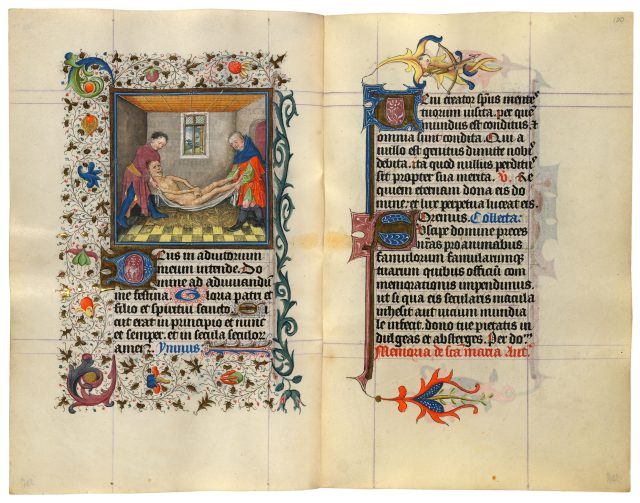 Deus in adiutorium
meum intende. Do
mine ad adiuuandu
me festina. Gloria patri et
filio et spiritui sancto.
cut erat in principio et nunc
et semper. et in secula seculor
amen. Ymnus
100
Deus creator sp̄us mente
tuorum uisita. per que
mundus est conditus. et
omnia sunt condita. Qui a
nullo est genitus dimitte nobis
debita. ita quod nullus perditus
sit propter sua merita. V. Re
quiem eternam dona eis do
mine. et lux perpetua luceat eis.
Oremus. Collecta.
Suscipe domine preces
nr̄as pro animabus
famulorum famularumq
tuarum quibus officiū com
memorationis impendimus.
ut si qua eis secularis macula
inhesit aut uicium mundia
le infecit. dono tue pietatis in
dulgeas et abstergas. Per do
Memoria de sc̄a maria Ant.